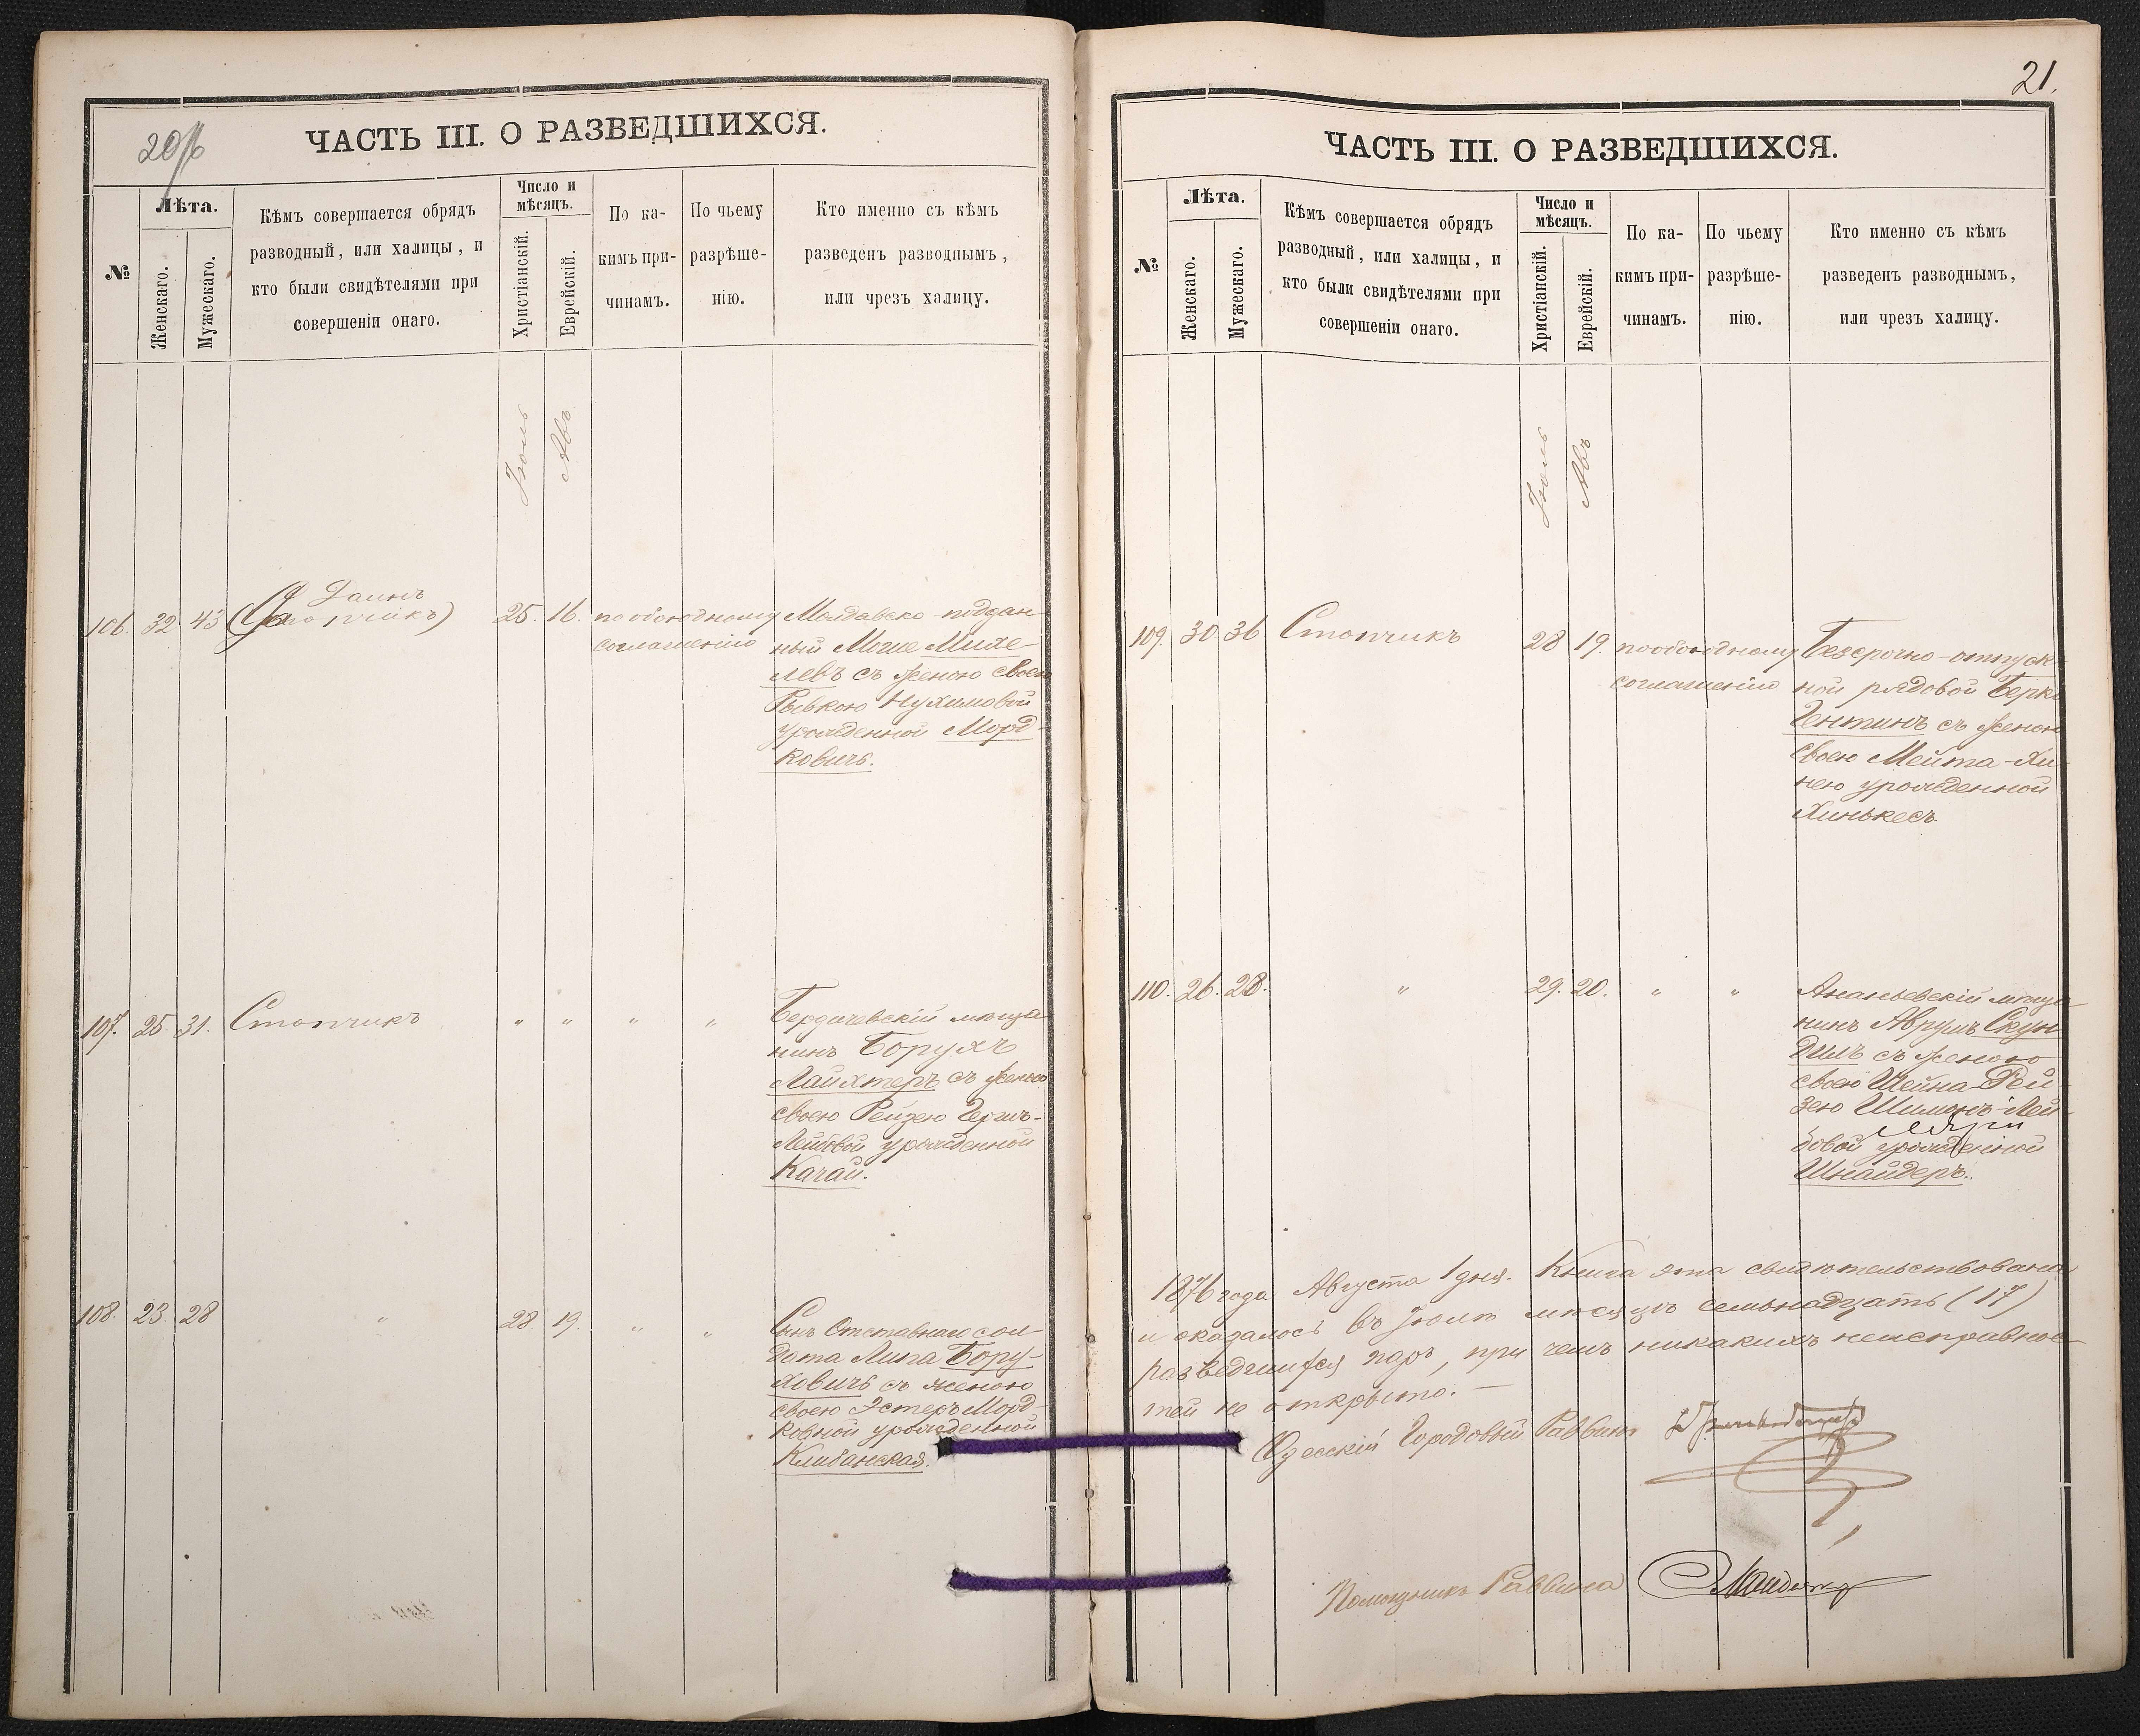 20/б
ЧАСТЬ III. О РАЗВЕДШИХСЯ.
№
Лѣта.
Женскаго.
Мужескаго.
Кѣмъ совершается обрядъ
разводный, или халицы, и
кто были свидѣтелями при
совершеніи онаго.
Число и
мѣсяцъ.
Христіанскій.
Еврейскій.
По ка-
кимъ при-
чинамъ.
По чьему
разрѣше-
нію.
Кто именно съ кѣмъ
разведенъ разводнымъ,
или чрезъ халицу.
Іюль
Авъ
Даинъ
106. 32. 43 25. 16. по обоюдному Молдавско-поддан-
соглашенію ный Моше Михе-
левъ съ женою своею
Рывкою Нухимовой
урожденной Морд-
ковичъ.
107. 25. 31. Стопчикъ " " " " Бердичевскій мѣща-
нинъ Борухъ
Лайхтеръ съ женою
своею Рейзею Герш-
Лейбовой урожденной
Качай.
108. 23. 28 " 28. 19. " " Сынъ Отставнаго сол-
дата Липа Бору-
ховичъ съ женою
своею Эстеръ Морд-
ковной урожденной
Клибанская.
21.
ЧАСТЬ III. О РАЗВЕДШИХСЯ.
№
Лѣта.
Женскаго.
Мужескаго.
Кѣмъ совершается обрядъ
разводный, или халицы, и
кто были свидѣтелями при
совершеніи онаго.
Число и
мѣсяцъ.
Христіанскій.
Еврейскій.
По ка-
кимъ при-
чинамъ.
По чьему
разрѣше-
нію.
Кто именно съ кѣмъ
разведенъ разводнымъ,
или чрезъ халицу.
Іюль
Авъ
109. 30. 36. Стопчикъ 28 19. по обоюдному Безсрочно-отпуск-
соглашенію ной рядовой Берко
Гентинъ съ женою
своею Мейта-Хи-
нею урожденной
Хинькесъ.
110. 26. 28. " 29. 20. " " Ананьевскій мѣща-
нинъ Аврумъ Скун-
дилъ съ женою
своею Шейна-Рей-
зею Шимонъ-Лей-
бовой урожденной
Шнайдеръ.
1876 года Августа 1 дня. Книга эта свидѣтельствована
и оказалось въ Іюлѣ мѣсяцѣ семьнадцать (17)
разведшихся паръ, при чемъ никакихъ неисправнос-
тей не открыто. —
Одесскій Городовый Раввинъ
Помощникъ Раввина